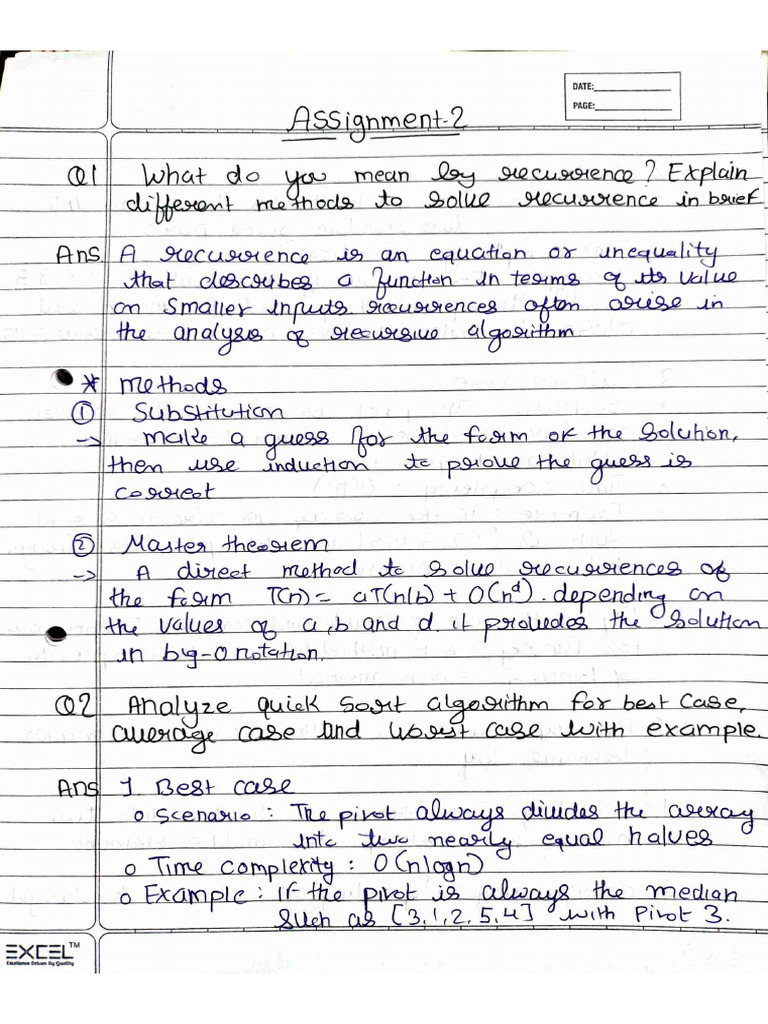 DATE:
PAGE:
Assignment-2
Q1 What do you mean by recurrence? Explain
different methods to solve recurrence in brief
Ans. A recurrence is an equation or inequality
that describes a function in terms of its value
on smaller inputs. recurrences often arise in
the analysis of recursive algorithm
* Methods
① Substitution
→ Make a guess for the form of the solution,
then use induction to prove the guess is
correct
② Master theorem
→ A direct method to solve recurrences of
the form T(n) = aT(n/b) + O(n^d). depending on
the values of a, b and d. it provides the solution
in big-O notation.
Q2 Analyze quick sort algorithm for best case,
average case and worst case with example.
Ans 1. Best case
o Scenario: The pivot always divides the array
into two nearly equal halves
o Time complexity: O(nlogn)
o Example: if the pivot is always the median
such as [3,1,2,5,4] with Pivot 3.
EXCEL™
Excellence Driven By Quality